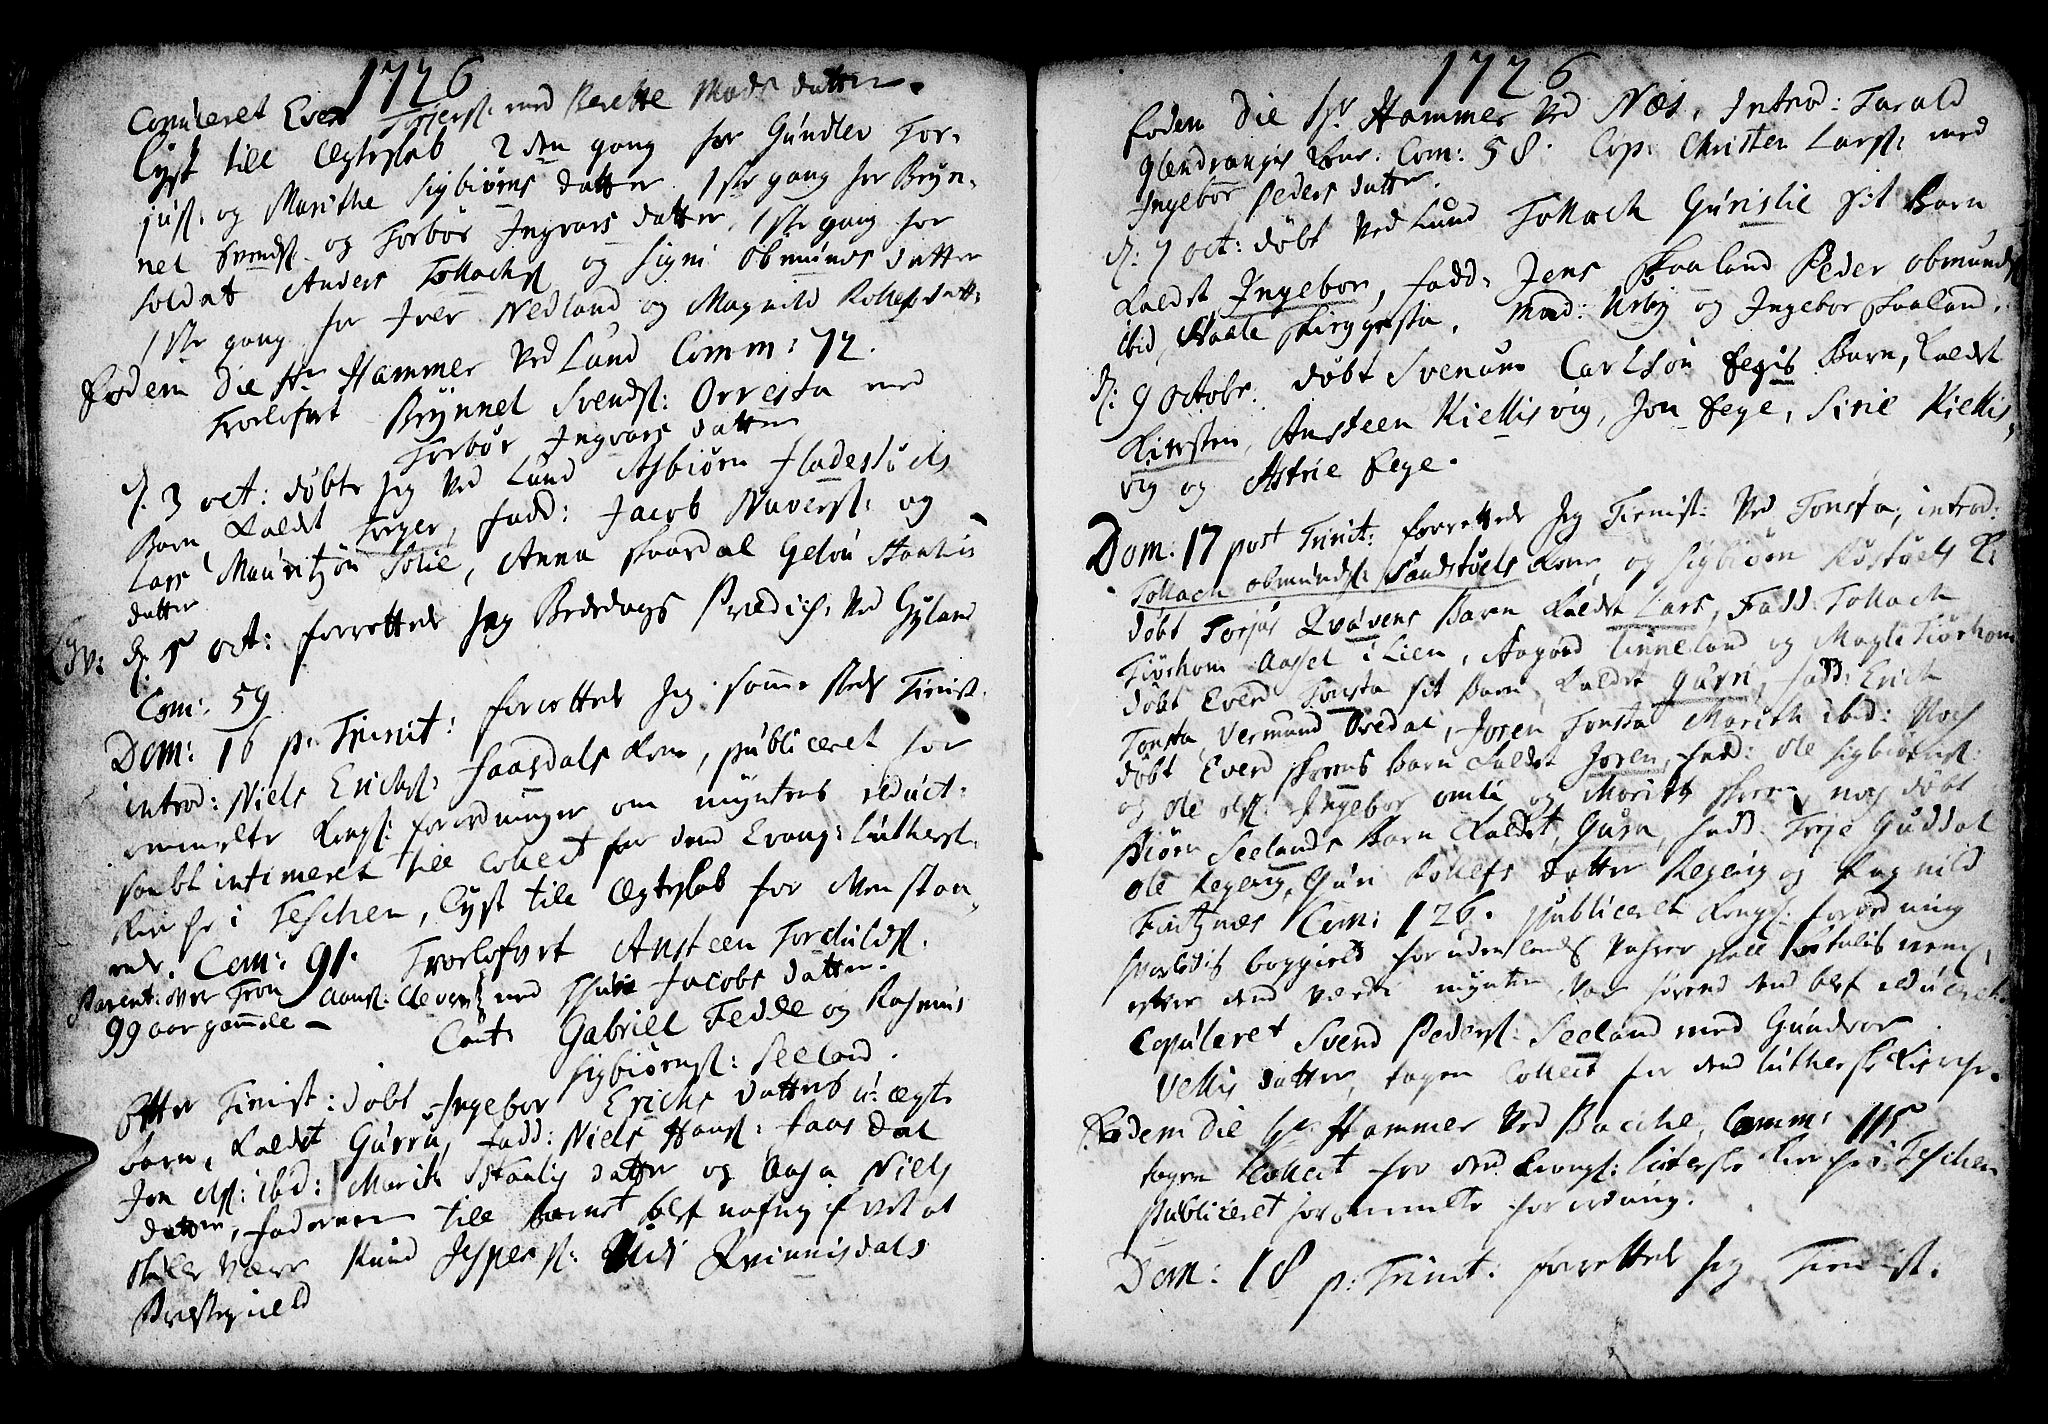 1726
Copuleret Even Torjersß: med Berette Mads datter.
Lyst till Ægteskab 2den gang for Gundlev Tor-
jusß: og Marithe Sigbiørns datter 1ste gang for Bryn-
nel Svendsß og Torbør Ingvars datter, 1ste gang for
Soldat Anders Tollachsß og Signi Obmunds datter
1ste gang for Iver Nedland og Magnild Rollefs datt:
Eodem Die Hr Hammer ved Lund Comm: 72.
Trolofvet Brynnel Svendsß: Orresta med
Torbør Ingvars datter
d: 3 oct: døbte jeg ved Lund Asbiørn Fladestøels
Barn kaldet Torger, Fadd: Jacob Naversß: og
Lars Mauritzøn Solie, Anna Skaardal
datter
d: 5 oct: forrettede jeg Bededags Prædich: ved Gyland
Com: 59
Dom: 16 p: Trinit: forrettede jeg samme steds Tienist.
introd: Niels Erichsß: Faasdals Kone, publiceret for
ommelte Kongl: forordninger om myntens reduct:
samt intimeret till Collect for dend Evang: Luthersk.
Kirche i Teschen, Lyst till Ægteskab for
Com: 91. Trolofvet Ansteen Torchildsß.
Parent: over Tron Aansß: Eleven med Jacobs datter.
99 aar gamle -
Caut: Gabriel Fedde og Rasmus
Sigbiørnsß: Seeland.
Efter Tienist: døbt Ingebor Erichs datters u: ægte
barn, kaldet Gurru, Fadd: Niels Hansß: Faasdal
Jon Olsß: ibid: Marith Staalis datter og Aasa Niels
datter, Faderen till barnet blef udi
skulle være Knud Jespersß: udi Qvinnisdals
Præstegield
1726
Eodem Die Hr Hammer ved Næs, Introd: Tarald
Glendranges Kone. Com: 58. Cop: Christen Larsß: med
Ingebor Peders datter.
d: 7 oct: døbt ved Lund Tollach Gurislie sit Barn
kaldet Ingebor, Fadd: Jens Skaaland Peder Obmundsß
ibid, Staale Birggesta, Mad: Urby og Ingebor Skaaland.
d: 9 Octobr: døbt Svenum Carlsøn Feges Barn, kaldet
Kirsten, Ansteen Kiellisvig, Jon Fege, Sirie Kiellis-
vig og Astrie Fege.
Dom: 17 post Trinit: forrettede jeg Tienist: ved Tonsta, introd:
Tollach Obmundsß: Sandstøels Kone og Sigbiørn Røstøels K:
døbt Torjus Qvævens Barn kaldet Lars, Fadd: Tollach
Tiørhom Aasel i Lien, Aagaad Tinneland og Magli Tiørhom
døbt Everd Tonsta sit Barn, kaldet Guri, Fadd: Erich
Tonsta, Vermund Ovedal, Joren Tonsta Marith ibid: Noch
døbt Everd Skrems Barn kaldet Joren, Fad: Ole Sigbiørnsß:
og Ole Olsß: Ingebor Omli og Marith Skrem, noch døbt
Biørn Seelands Barn kaldet, Guru, Fadd: Terje Guddal
Ole Regevig, Guri Rollefs datter Regevig og Ragnild
Fintznes Com: 126. publiceret Kongl: forordning
for udenlands
efter dend værdi mynten var førend dend blef reduceret
Copuleret Svend Pedersß: Seeland med Gundvor
Vellis datter, tagen Collect for dend Lutherske Kirche.
Eodem die Hr Hammer ved Bacche, Comm: 115
tagen Collect for dend Evangl: Luterske Kirche i Teschen
publiceret forommelte forordning.
Dom: 18 p: Trinit: forrettede jeg Tienist.